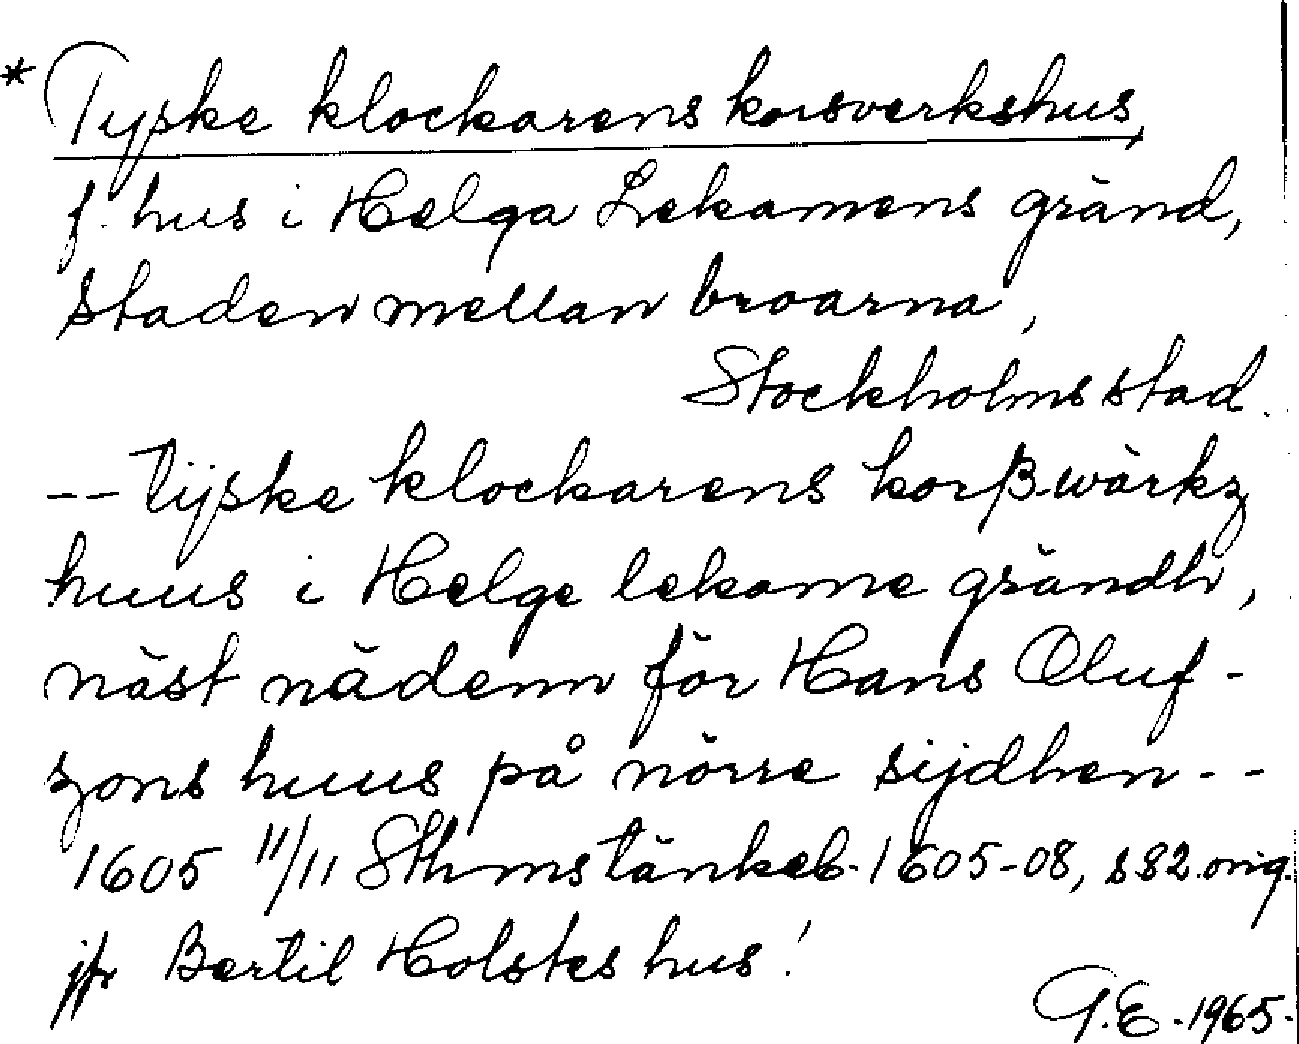 * Tyske klockarens korsverkshus,
f. hus i Helga Lekamens gränd,
staden mellan broarna,
Stockholms stad.
-- tijske klockarens korß-wärkz
huus i Helge lekame grändh,
näst nädenn för Hans Oluf-
zons huus på nörre sijdhen --
1605 11/11 Sthms tänkeb. 1605-08, s 82. orig.
jfr Bertil Holstes hus!
G.E. 1965.